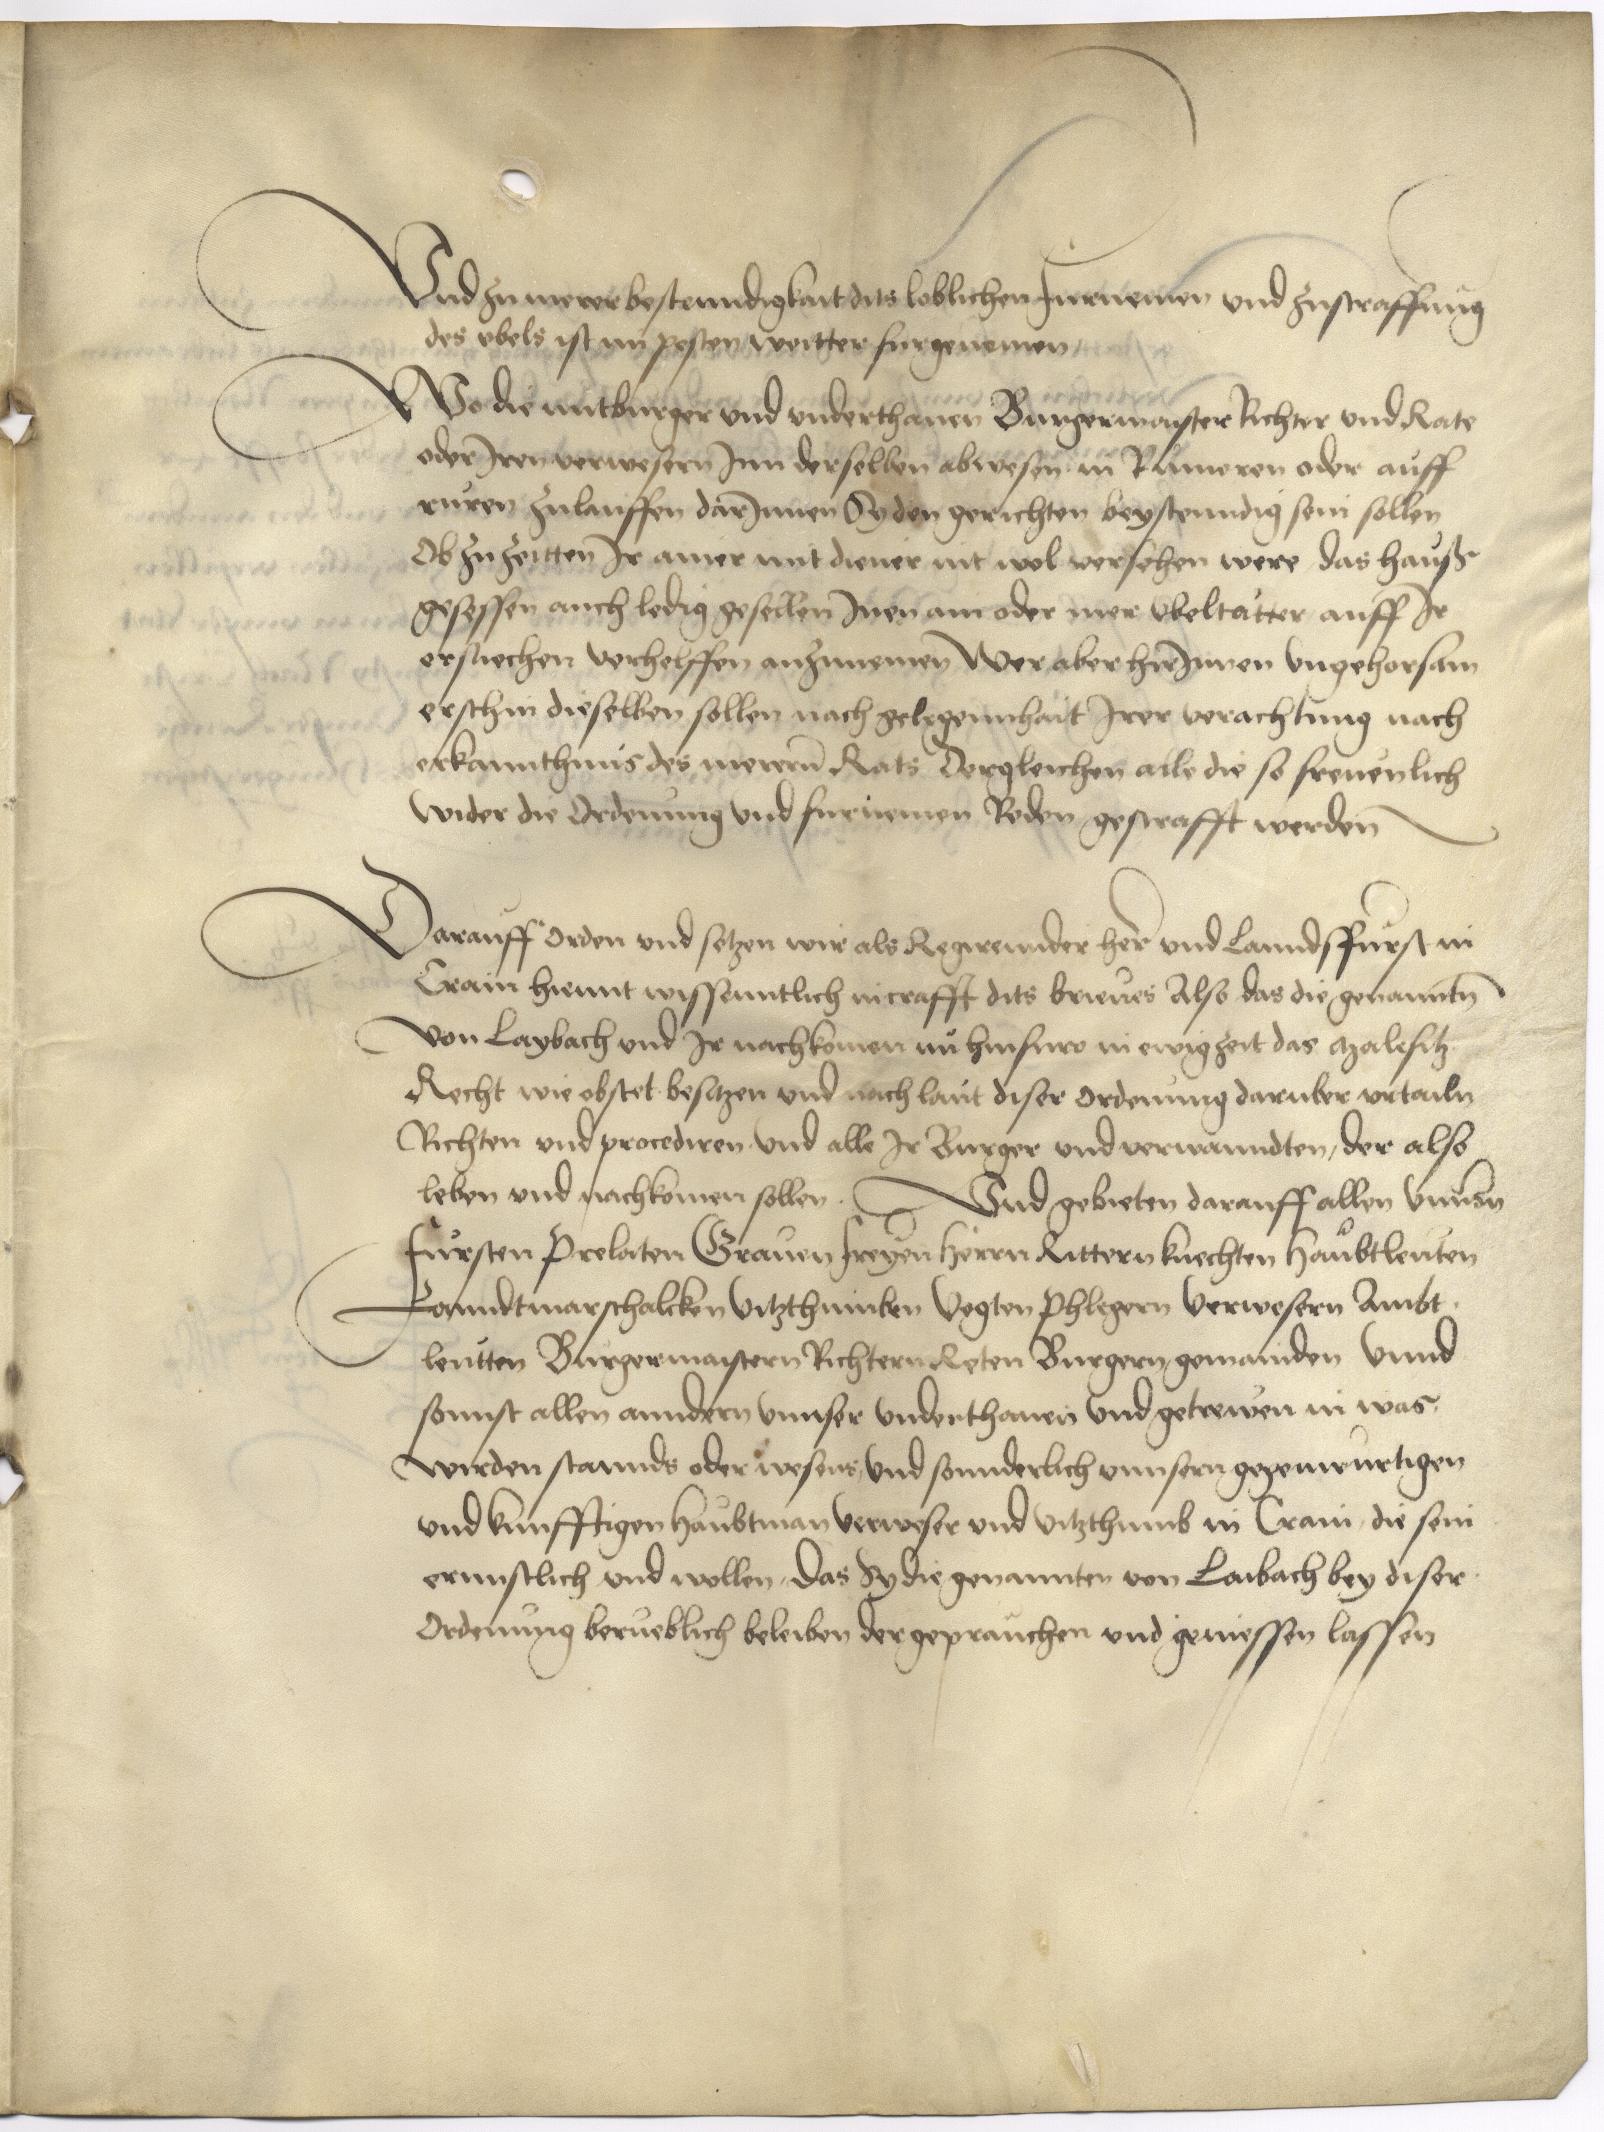 Vnd zu merer bestenndigkait dits loblichen furnemen vnd zustraffung
des vbels ist im pesten weitter furgenemen
Wo die mitburger vnd vnderthanen Burgermaister Richter vnd Rate
oder Iren verwesern Inn derselben abwesen in Rumoren oder auff
ruren zulauffen darInnen Sy den gerichten beystenndig sein sollen
Ob zu zeitten Ir ainer mit diener nit wol versehen were das hauß
gesessen auch ledig gesellen Inen ain oder mer vbeltatter auff Ir
ersuechen verhelffen anzunemen Wer aber hirInnen vngehorsam
erschin dieselben sollen nach gelegennhait Irer verachtung nach
erkanntnus des merern Rats Dergleichen alle die so freuenlich
wider die Ordenung vnd furnemen Reden gestrafft werden
Darauff orden vnd setzen wir als Regirennder herr vnd Lanndsffurst in
Crain hiemit wissenntlich in crafft dits brieues Also das die genannten
von Laybach vnd Ir nachkomen nu hinfuro in ewig zeit das Malefitz
Recht wie obstet besitzen vnd nach laut diser ordenung daruber vrtailn
Richten vnd procediren vnd alle Ir Burger vnd verwanndten, der also
leben vnd nachkomen sollen. Vnd gebieten darauff allen vnnsern
fursten Prelaten Grauen freyen herrn Rittern knechten haubtleuten
Lanndtmarschalcken Vitzthumben Vogten Phlegern Verwesern Ambt
leutten Burgermaistern Richtern Reten Burgern gemainden vnnd
sonnst allen anndern vnnser vnderthanen vnd getrewen in was
wirden stannds oder wesens, vnd sonnderlich vnnsern gegenwurtigen
vnd kunfftigen haubtman verweser vnd vitzthumb in Crain, die sein
ernnstlich vnd wollen, Das Sy die genannten von Laibach bey diser
Ordenung berueblich beleiben der geprauchen vnd geniessen lassen